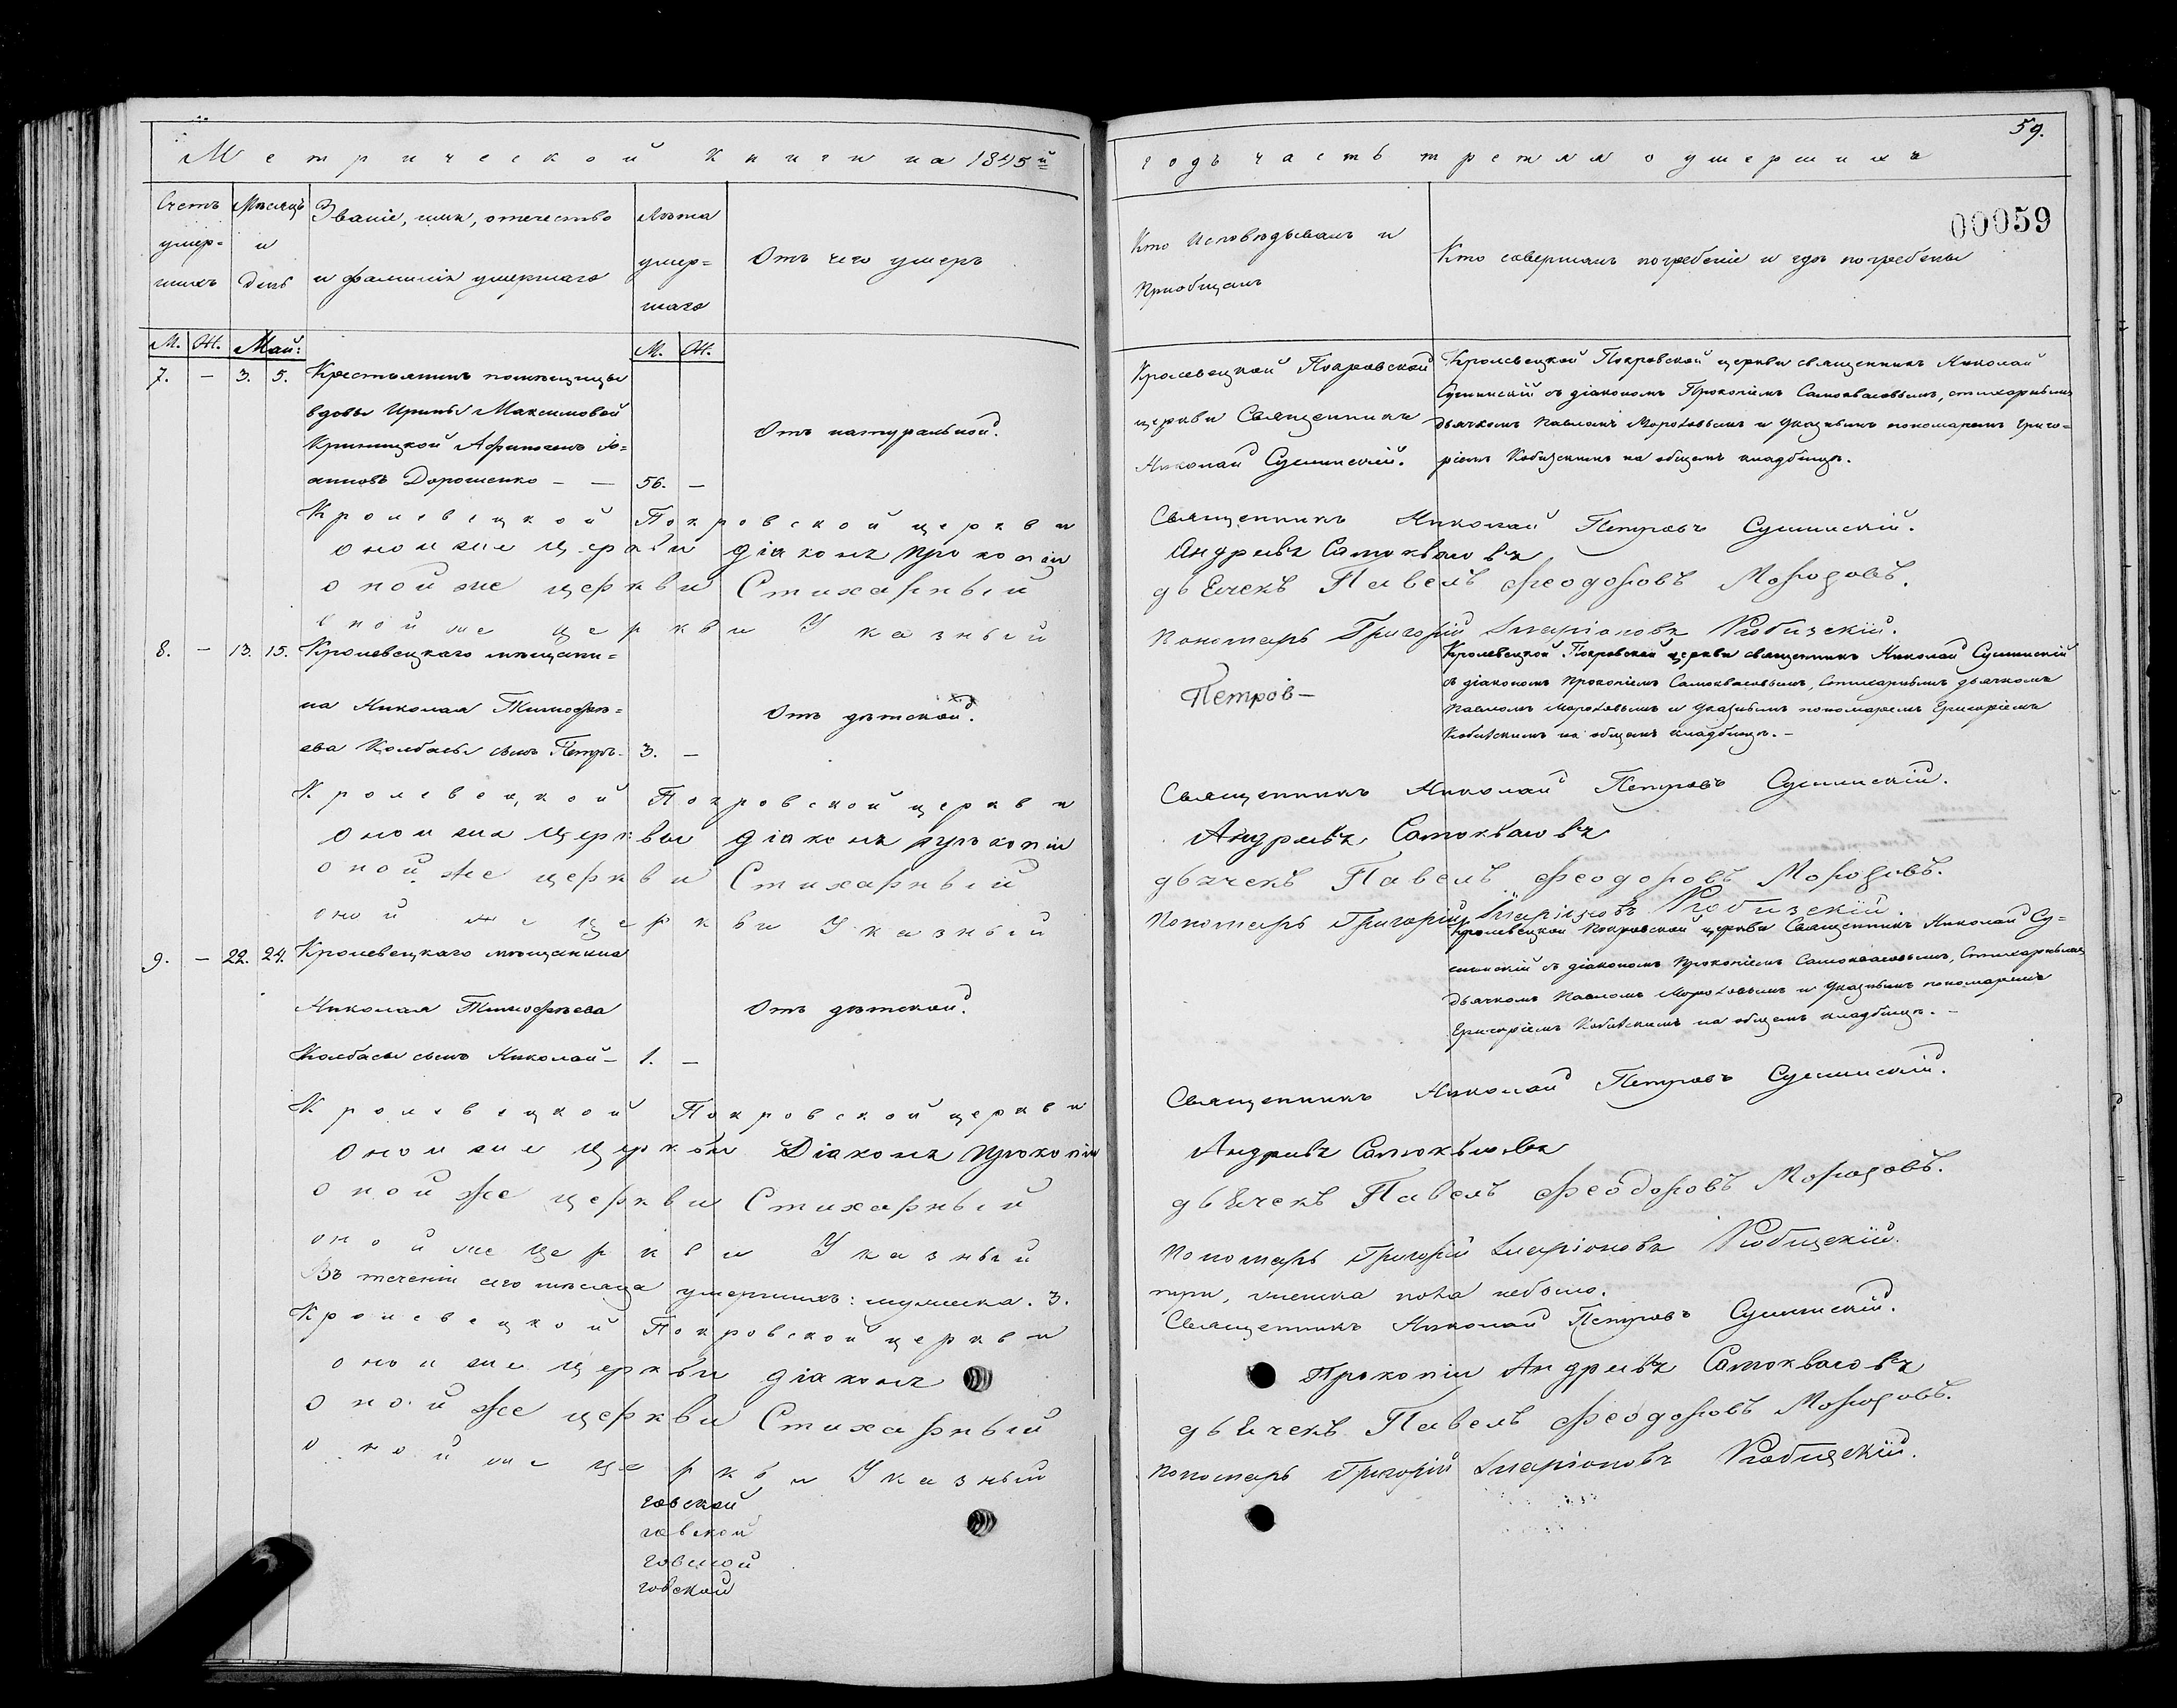 Метрической книги на 1845й
годъ часть третяя о умершихъ
59.
00059
Счетъ умер=шихъ
Мѣсяцъ и день
Званіе, имя, отечество
и фамилія умершаго
Лѣта умер=шаго
Отъ чего умеръ
Кто исповѣдывалъ и
пріобщалъ
Кто совершалъ погребеніе и гдѣ погребены
М. Ж. Май: М. Ж.
7. — 3. 5. Крестьянинъ помѣщицы
вдовы Ирины Максимовой
Криницкой Афиногенъ Іо=
анновъ Дорошенко — — 56. —
Отъ натуральной.
Кролевецкой Покровской
церкви Священникъ
Николай Сушинскій.
Кролевецкой Покровской церкви священникъ Николай
Сушинскій съ діакономъ Прокопіемъ Самоквасовымъ, стихарнымъ
дьячкомъ Павломъ Морозовымъ и указнымъ пономаремъ Григо=
ріемъ Кобизскимъ на общемъ кладбищѣ.
Кролевецкой Покровской церкви Священникъ Николай Петровъ Сушинскій.
оной же церкви діаконъ Прокопій Андреевъ Самоквасовъ
оной же церкви Стихарный дьячекъ Павелъ Феодоровъ Морозовъ.
оной же церкви Указный пономарь Григорій Иларіоновъ Кобизскій.
8. — 13. 15. Кролевецкаго мѣщани=
на Николая Тимофѣе=
ева Колбасы сынъ Петръ- 3. —
Отъ дѣтской.
Петров—
Кролевецкой Покровской церкви священникъ Николай Сушинскій
съ діакономъ Прокопіемъ Самоквасовымъ, Стихарнымъ дьячкомъ
Павломъ Морозовымъ и указнымъ пономаремъ Григоріемъ
Кобизскимъ на общемъ кладбищѣ. —
Кролевецкой Покровской церкви Священникъ Николай Петровъ Сушинскій.
оной же церкви діаконъ Прокопій Андреевъ Самоквасовъ
оной же церкви Стихарный дьячекъ Павелъ Феодоровъ Морозовъ.
оной же церкви Указный пономарь Григорій Иларіоновъ Кобизскій
9. — 22. 24. Кролевецкаго мѣщанина
Николая Тимофѣева
Колбасы сынъ Николай— 1. —
Отъ дѣтской.
Кролевецкой Покровской церкви Священникъ Николай Су=
шинскій съ діакономъ Прокопіемъ Самоквасовымъ, Стихарнымъ
дьячкомъ Павломъ Морозовымъ и указнымъ пономаремъ
Григоріемъ Кобизскимъ на общемъ кладбищѣ. —
Кролевецкой Покровской церкви Священникъ Николай Петровъ Сушинскій.
оной же церкви Діаконъ Прокопій Андреевъ Самоквасовъ
оной же церкви Стихарный дьячекъ Павелъ Феодоровъ Морозовъ.
оной же церкви Указный пономарь Григорій Иларіоновъ Кобизскій.
Въ теченіи сего мѣсяца умершихъ: мужеска. 3. три, женска пола небыло.
Кролевецкой Покровской церкви Священникъ Николай Петровъ Сушинскій.
оной же церкви діаконъ Прокопій Андреевъ Самоквасовъ
оной же церкви Стихарный дьячекъ Павелъ Феодоровъ Морозовъ.
оной же церкви Указный пономарь Григорій Иларіоновъ Кобизскій.
говской
говской
говской
говской